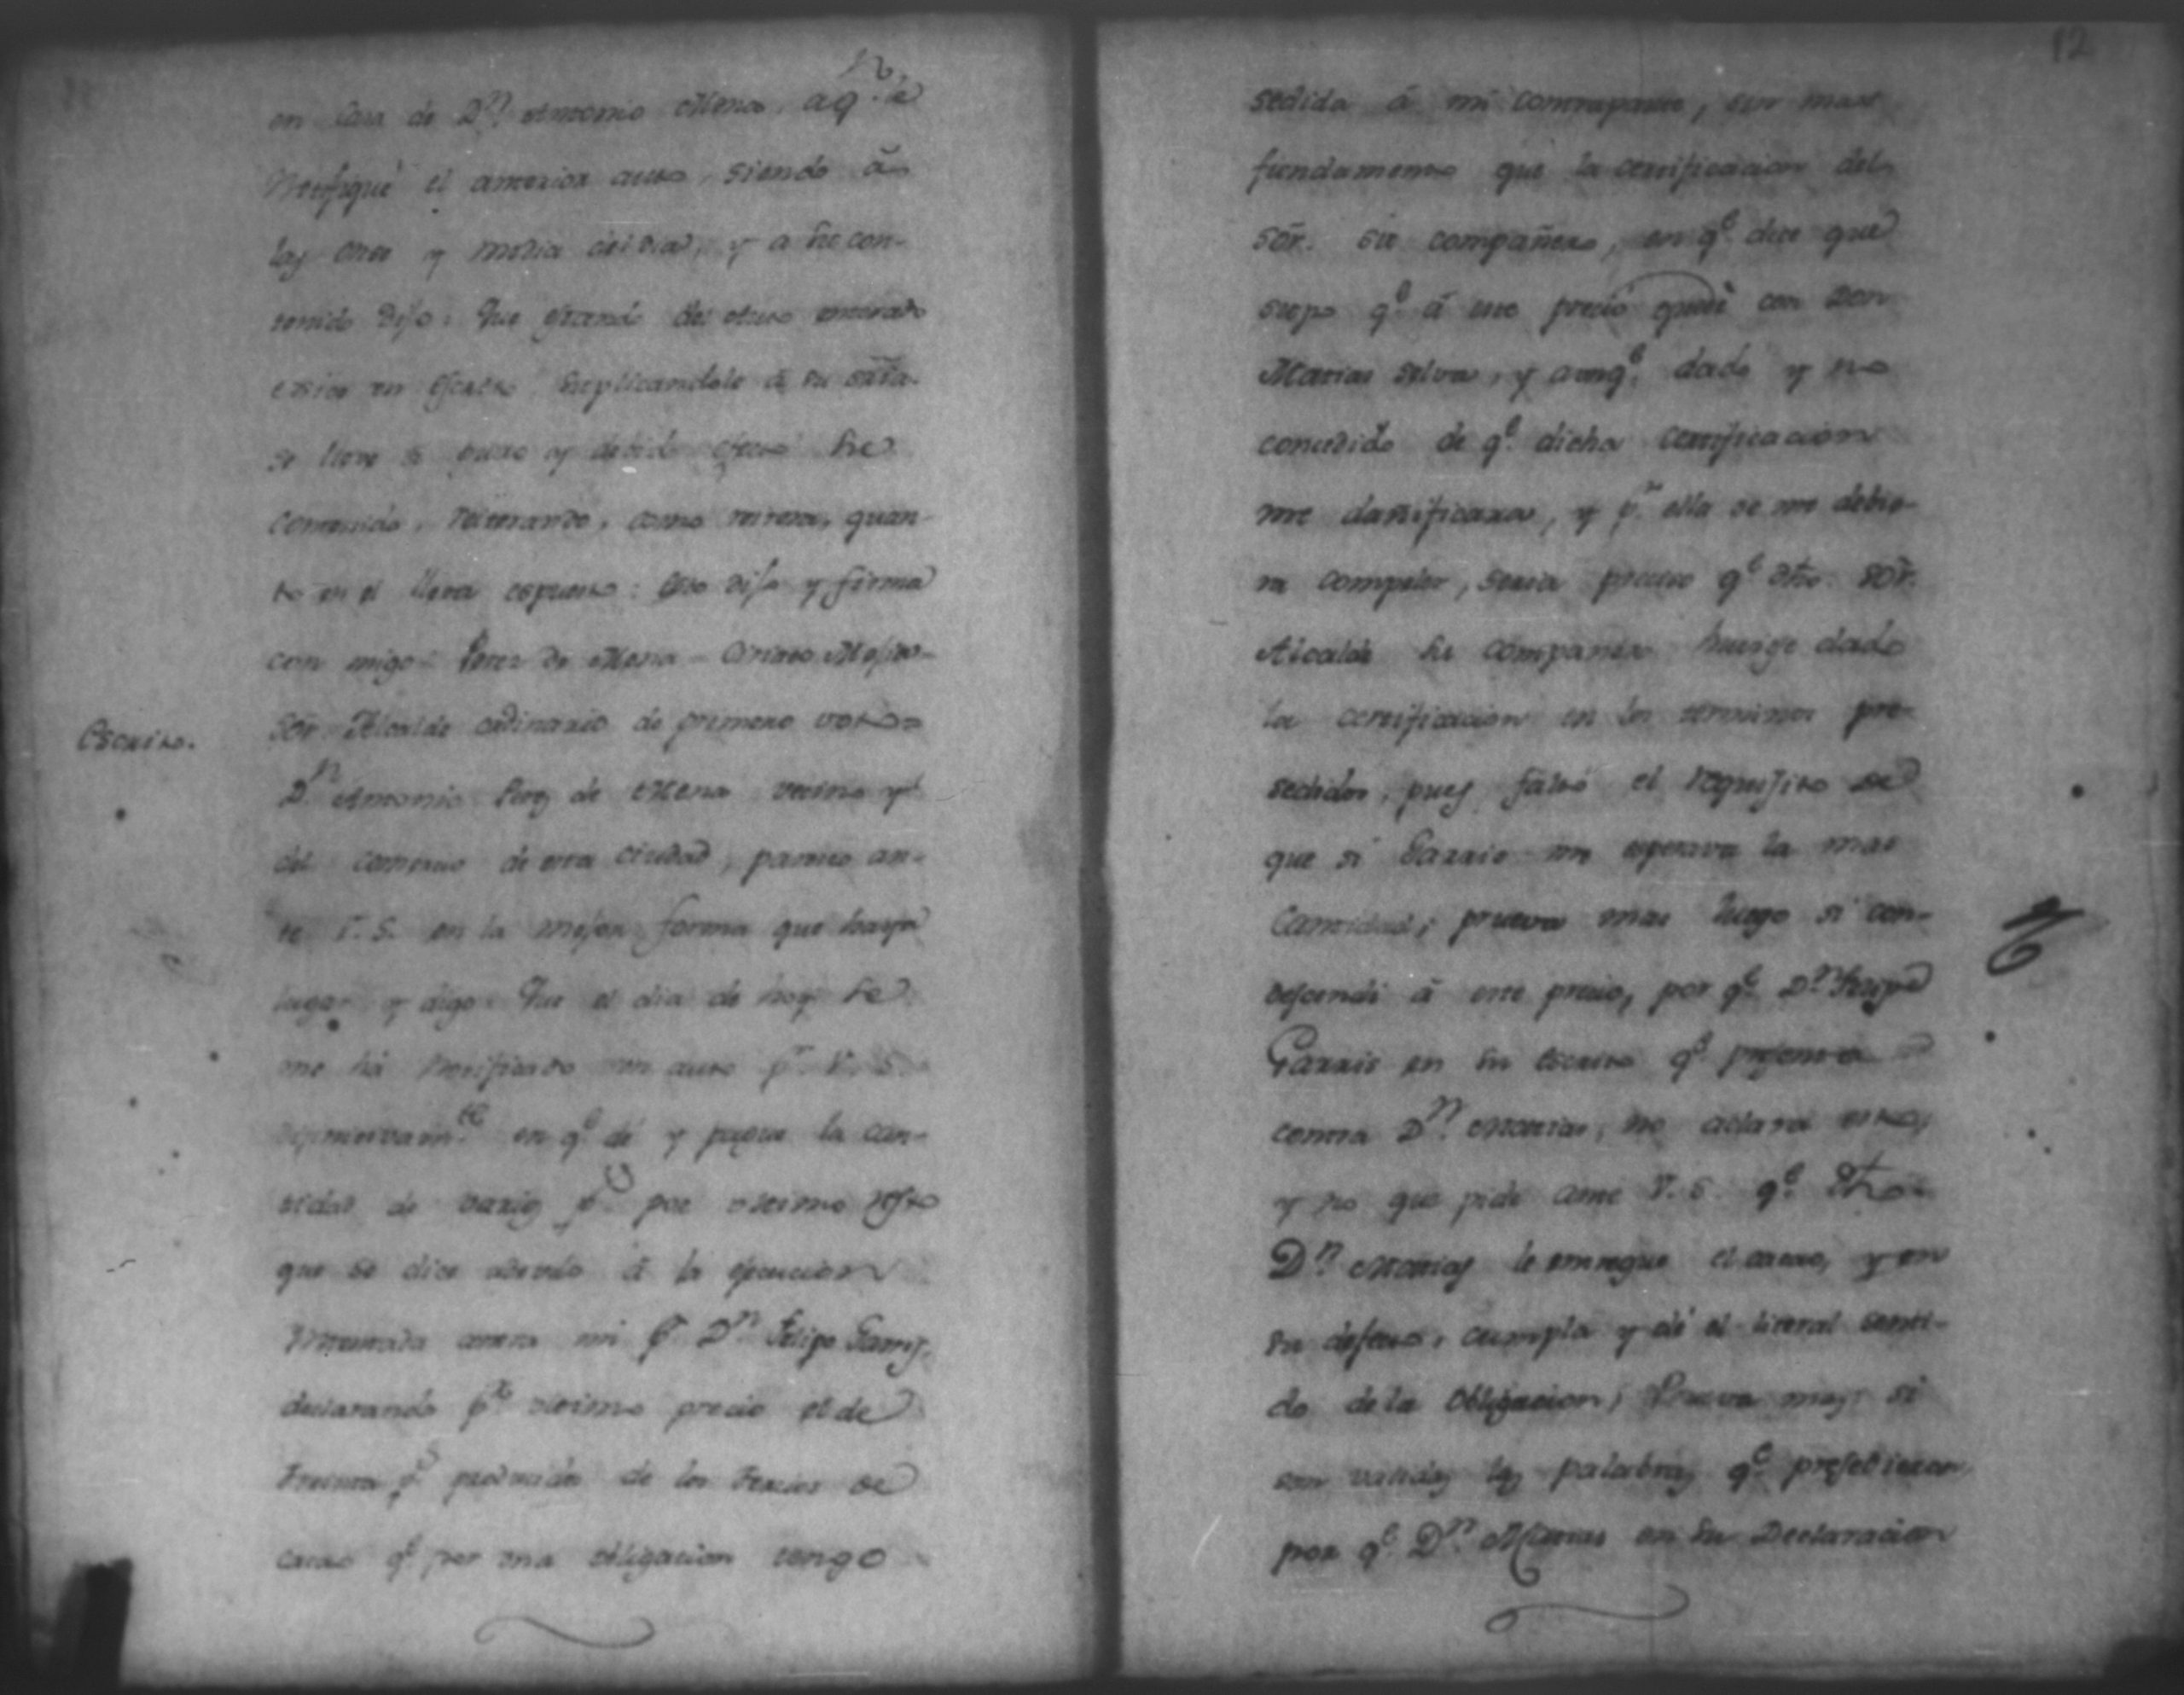 12
en casa de Dn. Antonio Mena, a qn. le
Notifiqué el anterior auto siendo á
las once y media del dia, y a su con-
tenido dijo: Que estando del otoro enterado
en escrito suplicandole á su señoria
se lleve á puro y debido efecto su
contenido, reiterando, como reitera, quan-
to en el lleva expuesto: Esto dijo y firma
con migo = Perez de Mena =
Escrito.
Sor. Alcalde ordinario de primero voto =
Dn. Antonio Perez de Mena vecino y
del comercio de esta ciudad, paresco an-
te V. S. en la mejor forma que haya
lugar y digo: Que el dia de hoy se
me há Notificado un auto pr. V. S.
difinitivamte. en qe. dé y pague la can-
tidad de varios ps. por ultimo resto
que se dice adeudo á la execucion
intentada contra mi pr. Dn. Felipe Garris,
declarando pr. ultimo precio el de
treinta ps. prosedido de los tercios de
cacao qe. por una obligacion tengo
sedida á mi contraparte, sin mas
fundamento que la certificacion del
sor. su compañero, en qe. dice que
supo qe. á ese precio quedé con Don
Matias Selva, y aunqe. dado y no
concedido de qe. dicha certificacion
me danificara, y pr. ella se me debie-
ra compeler, seria preciso qe. dho. sor.
Alcalde su compañero huvise dado
la certificacion en los terminos pre-
sedidos, pues faltó el requisito de
que si Garris me esperava la mas
Cantidad; prueva mas luego si con-
desendí á este precio, por qe. Dn. Felipe
Garris en su escrito qe. presenta
contra Dn. Matias, no aclara esto,
y no que pide ante V. S. qe. dho.
Dn. Matias le entregue el cacao, y en
su defecto, cumpla y dé el literal senti-
do de la obligacion; Prueva mas si
son validas las palabras qe. prefirieron
por qe. Dn. Matias en su Declaracion